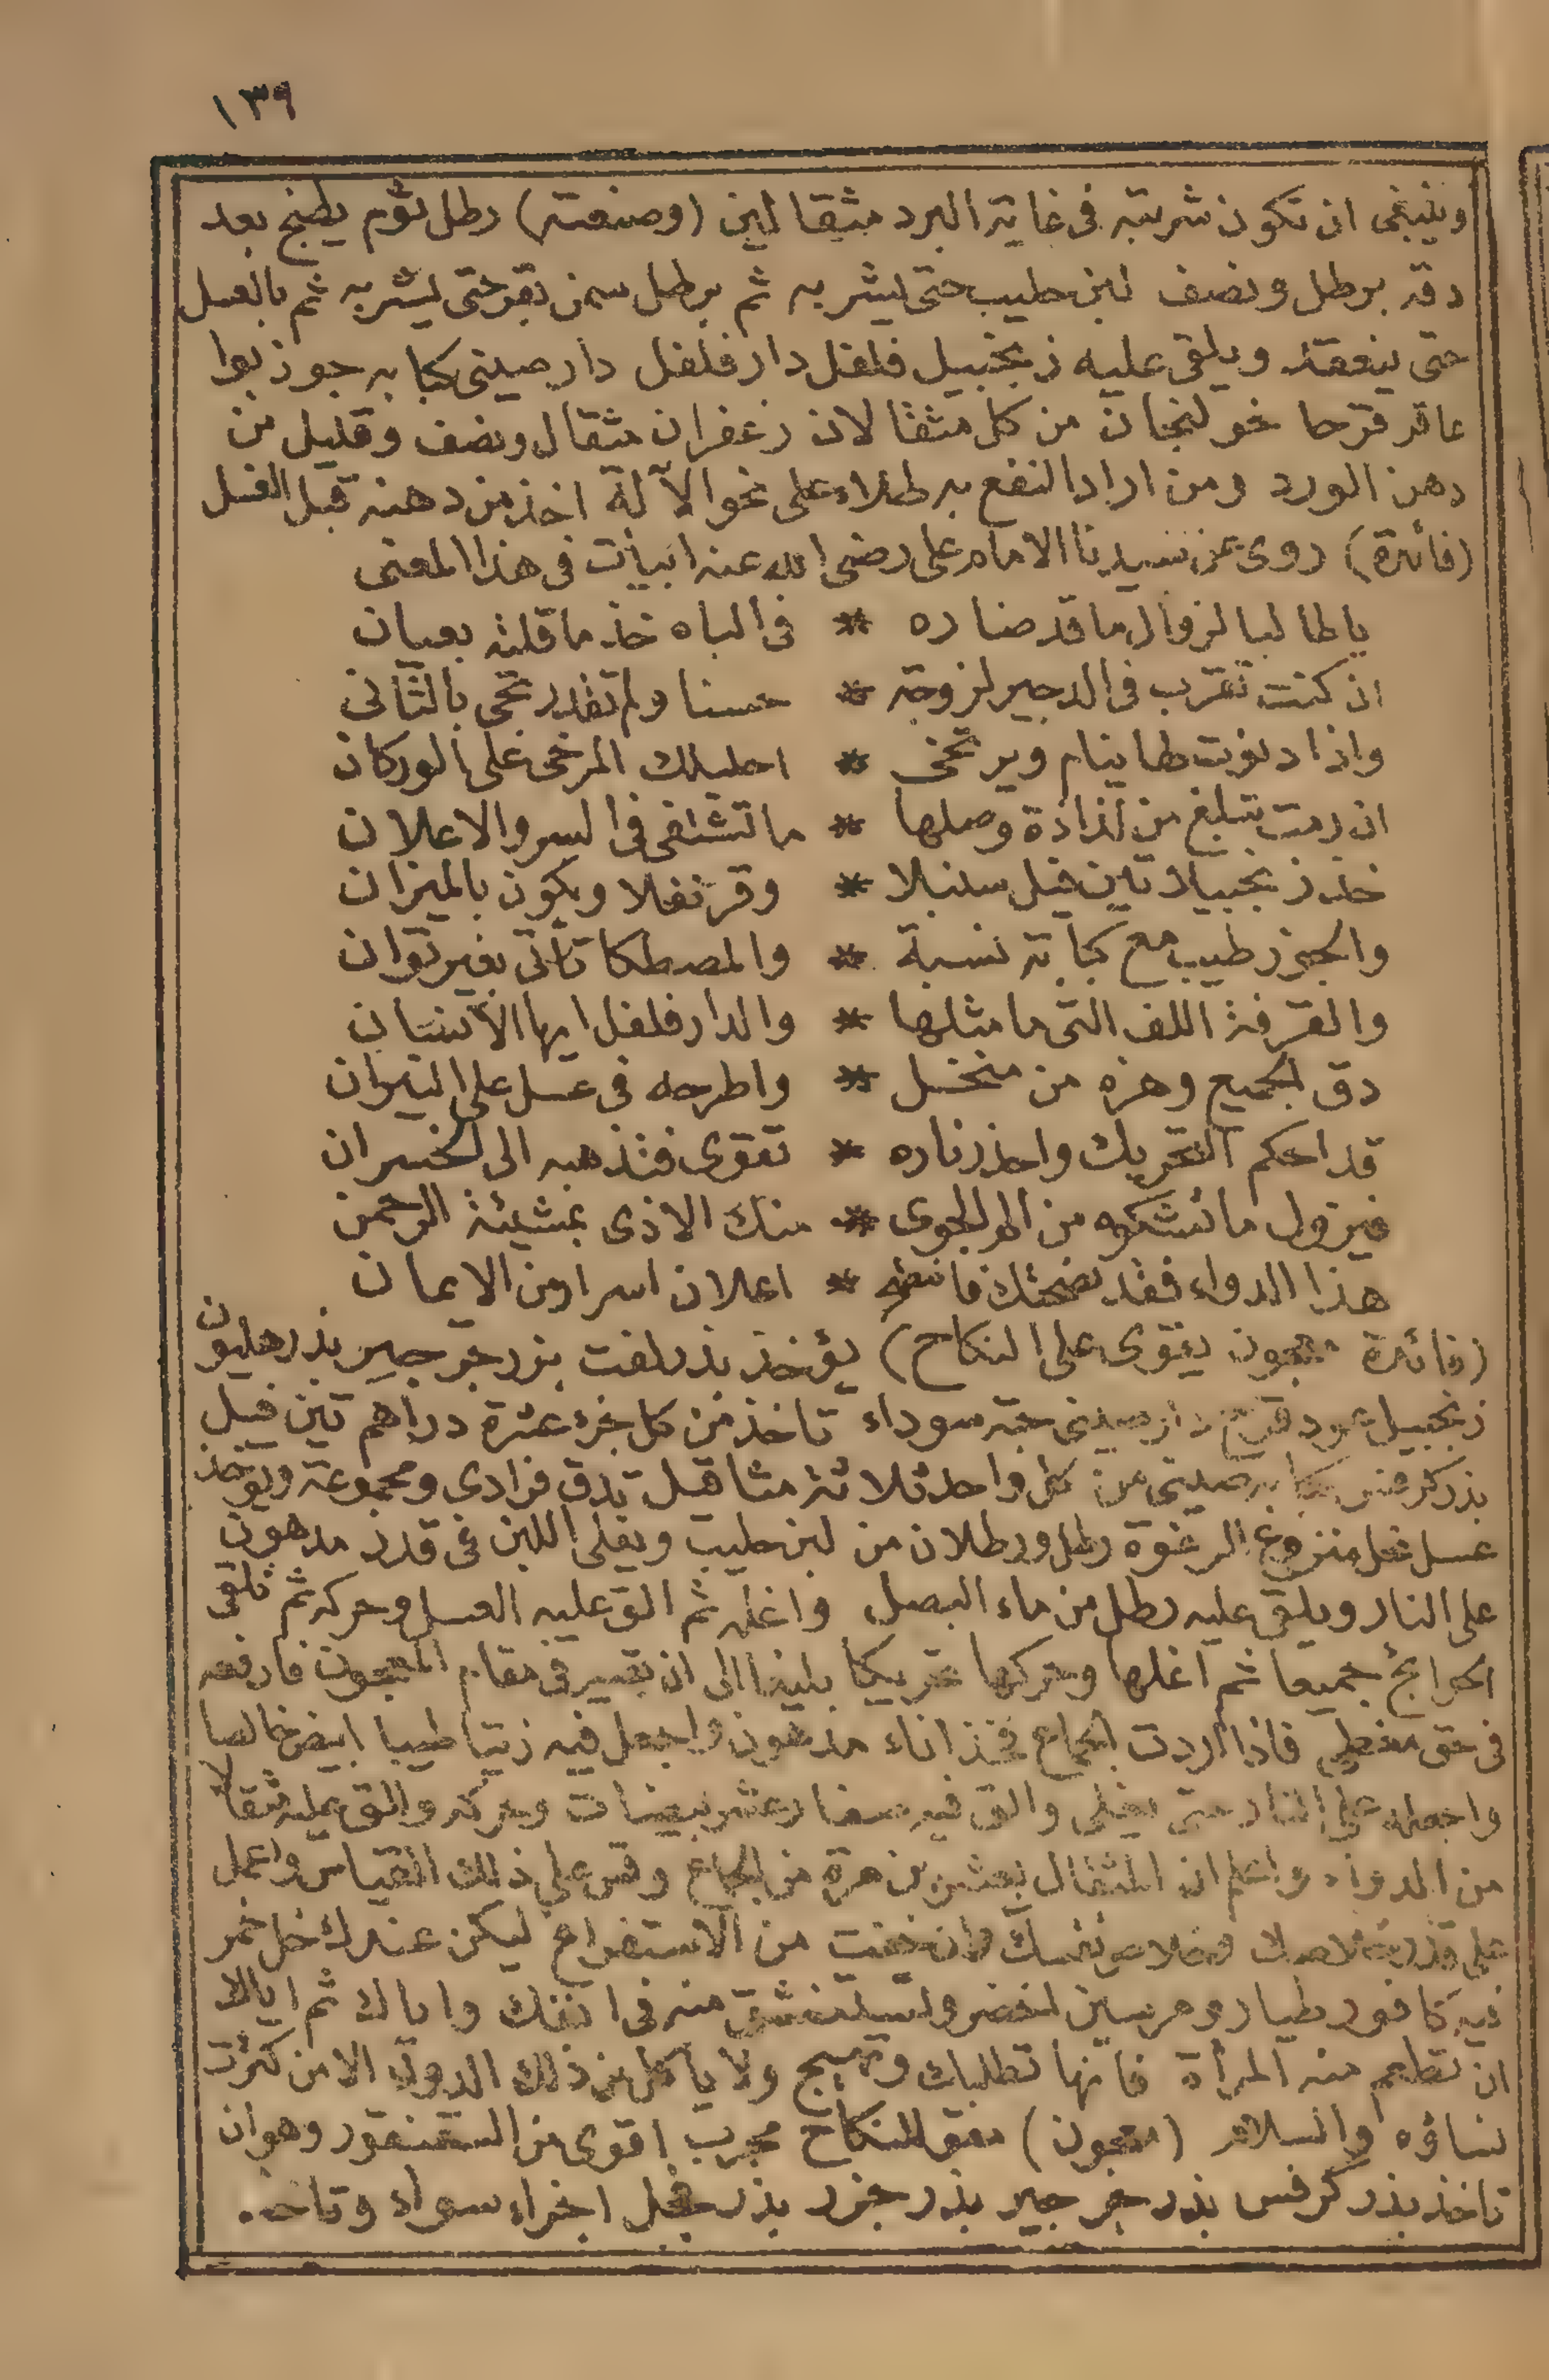 ١٣٩
وينبغى ان تكون شربته فى غاية البرد مثقالين (وصنعته) رطل ثوم يطبخ بعد
دقه برطل ونصف لبن حليب حتى يشربه ثم برطل سمن بقر حتى يشربه ثم بالعسل
حتى ينعقد ويلقى عليه زنجبيل فلفل دار فلفل دار صينى كبابه جوز بوا
عاقر قرحا خولنجان من كل مثقالان زعفران مثقال ونصف وقليل من
دهن الورد ومن اراد النفع به طلاء على نحو الآلة اخذ من دهنه قبل العسل
(فائدة) روى عن سيدنا الامام على رضى الله عنه ابيات فى هذا المعنى
يا طالبا لزوال ما قد ضاره * فى الباه خذ ما قلته بعيان
ان كنت تقرب فى الدجير لزوجة * حسنا ولم تقدر تجى بالثانى
واذا دنوت لها ينام ويرتخى * احليلك المرخى على الوركان
ان رمت تبلغ من لذاذة وصلها * ما تشتفى فى السر والاعلان
خذ زنجبيلا تين فيل سنبلا * وقرنفلا ويكون بالميزان
والجوز طيب مع كبابة نسبة * والمصطكا تأتى بغير توان
والقرفة اللف التى ما مثلها * والدار فلفل ايها الانسان
دق الجميع وهزه من منخل * واطرحه فى عسل على النيران
قد احكم التحريك واحذر ناره * تقوى فتذهبه الى الخسران
فيزول ما تشكوه من الم الجوى * منك الاذى بمشيئة الرحمن
هذا الدواء فقد نصحتك فانتصح * اعلان اسرار من الايمان
(فائدة معجون يقوى على النكاح) يؤخذ بذر لفت بزر جرجير بذر هليون
زنجبيل عود قرح دار صينى حبة سوداء تاخذ من كل جزء عشرة دراهم تين فيل
بذر كرفس كبابه صينى من كل واحد ثلاثة مثاقيل تدق فرادى ومجموعة ويؤخذ
عسل نحل منزوع الرغوة رطل ورطلان من لبن حليب ويغلى اللبن فى قدر مدهون
على النار ويلقى عليه رطل من ماء البصل واغله ثم الق عليه العسل وحركه ثم تلقى
الحوائج جميعا ثم اغلها وحركها تحريكا بليغا الى ان تصير فى مقام المعجون فارفعه
فى حق مغطى فاذا اردت الجماع فخذ اناء مدهون واجعل فيه زيتا طيبا ابيض خالصا
واجعله على النار حتى يغلى والق فيه صفار عشر بيضات وحركه والق عليه مثقالا
من الدواء واعلم ان المثقال بعشرين مرة من الجماع وقس على ذلك القياس واعمل
على قدر وخلاص نفسك وان خفت من الاستفراغ ليكن عندك خل خمر
فيه كافور طيار ومرسين اخضر ولتستنشق منه فى انفك واياك ثم اياك
ان تطعم منه المرأة فانها تطلبك وتهيج ولا يأكل من ذلك الدواء الا من كثرت
نساؤه والسلام (معجون) مقو للنكاح مجرب اقوى من السقنقور وهو ان
تاخذ بذر كرفس بذر جرجير بذر جزر بذر فجل اجزاء سواء وتاخذ